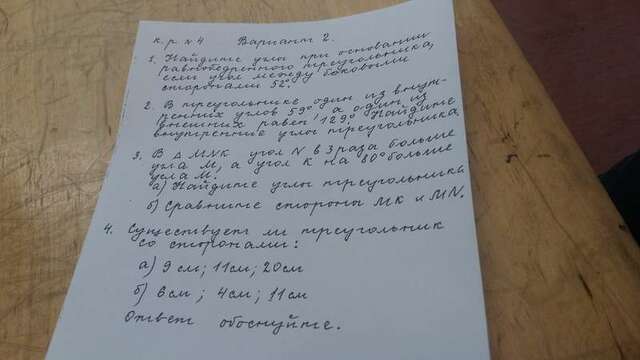 к. р №4 Вариант 2.
1. Найдите углы при основании
равнобедренного треугольника,
если угол между боковыми
сторонами 52°.
2. В треугольнике один из внут-
ренних углов 59°, а один из
внешних равен 129°. Найдите
внутренние углы треугольника
3. В △ MNK угол N в 3 раза больше
угла M, а угол K на 80° больше
угла M.
а) Найдите углы треугольника
б) Сравните стороны MK и MN.
4. Существует ли треугольник
со сторонами:
а) 9 см; 11см; 20см
б) 6см ; 4см ; 11см
Ответ обоснуйте.